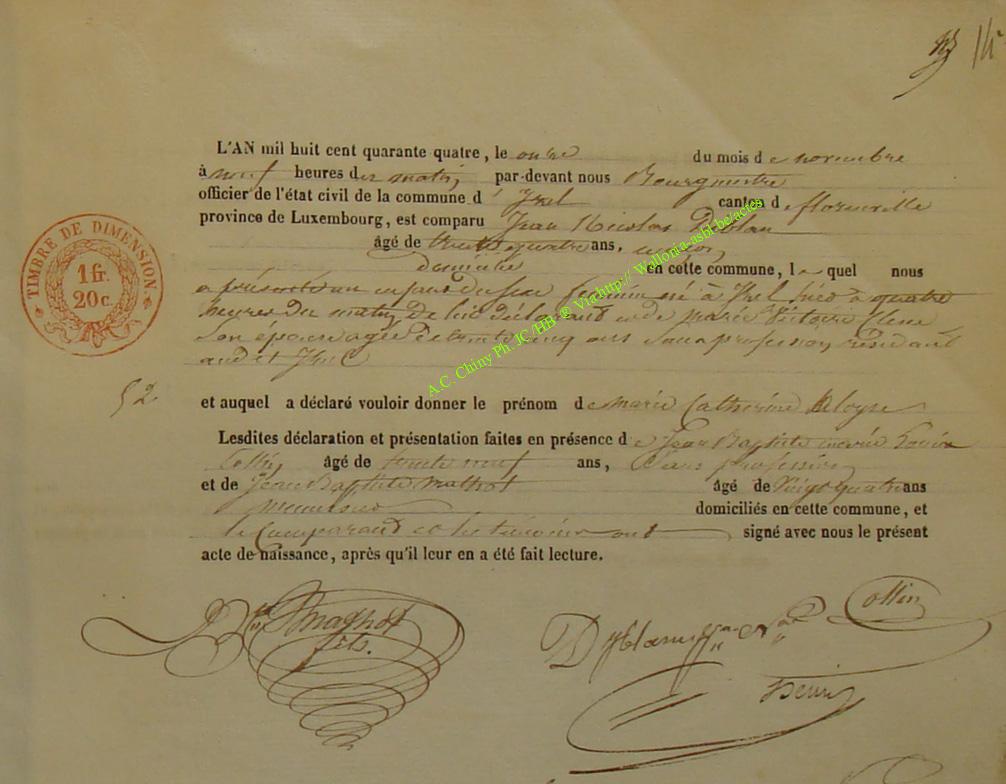 14
L'AN mil huit cent quarante quatre, le onze du mois de novembre
à neuf heures du matin, par-devant nous Bourgmestre
officier de l'état civil de la commune d'Izel canton de florenville
province de Luxembourg, est comparu Jean Nicolas
âgé de trente quatre ans, maçon
domicilié en cette commune, le quel nous
a présenté un enfant du sexe féminin né à Izel hier à quatre
heures du matin de lui déclarant et de marie Victoire
Son épouse agée de trente cinq ans Sans profession, résidant
audit Izel
52
et auquel a déclaré vouloir donner le prénom de marie Catherine Aloyse
Lesdites déclaration et présentation faites en présence de Jean Baptiste Louis
Collin âgé de trente neuf ans, Sans profession
et de Jean Baptiste mathot âgé de Vingt quatre ans
menuisier domiciliés en cette commune, et
le Comparant et les témoins ont signé avec nous le présent
acte de naissance, après qu'il leur en a été fait lecture.
TIMBRE DE DIMENSION
1 fr.
20 c.
A.C. Chiny Ph. JC /HB ® Via http:// Wallonia-asbl-be/actes
Collin
fils.
henin